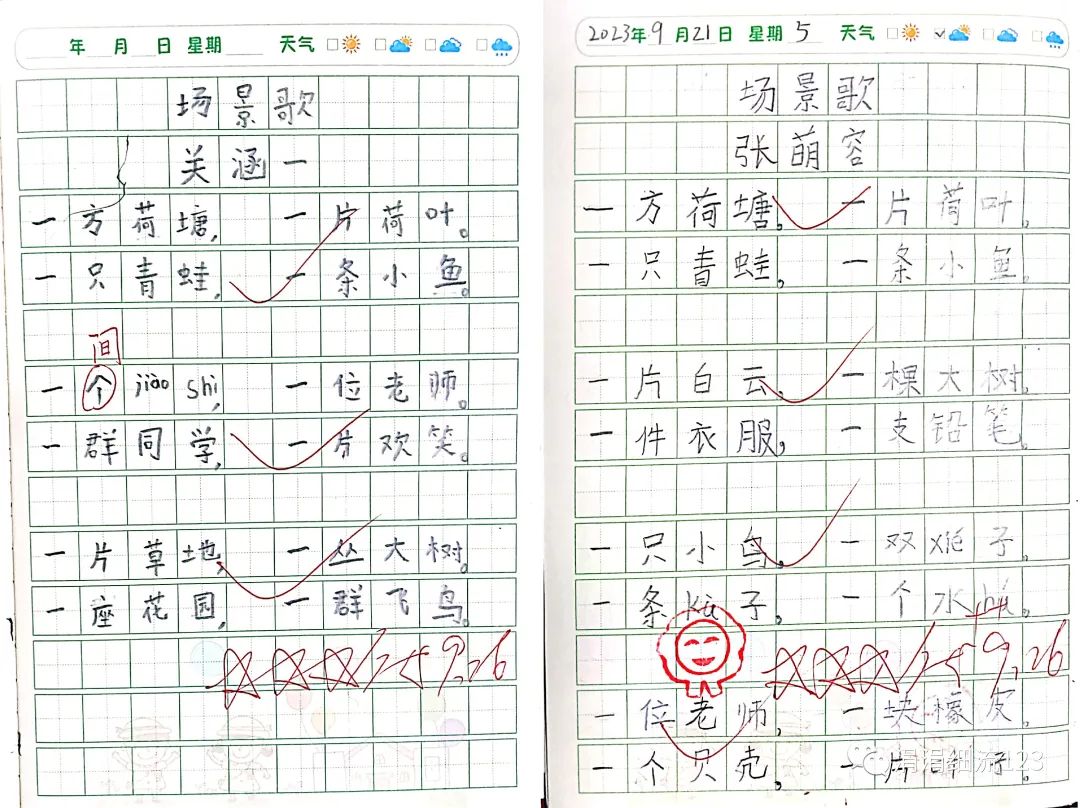 年 月 日 星期 天气
场景歌
关涵一
一方荷塘,一片荷叶。
一只青蛙,一条小鱼。
间
一个jiào shì,一位老师。
一群同学,一片欢笑。
一片草地,一丛大树。
一座花园,一群飞鸟。
9.26
2023年9月21日 星期5 天气
场景歌
张萌容
一方荷塘,一片荷叶。
一只青蛙,一条小鱼。
一片白云,一棵大树。
一件衣服,一支铅笔。
一只小鸟,一双xié子。
一条kù子,一个水hú。
9.26
一位老师,一块橡皮。
一个贝壳,一片 子。
涓涓细流123